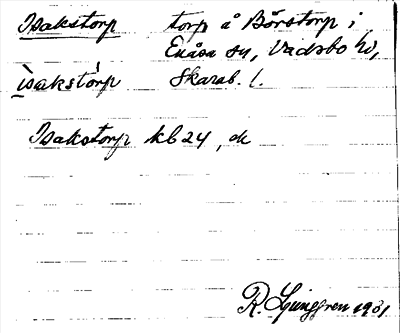 Isakstorp torp å Börstorp i
Enåsa sn, Vadsbo hd,
ìsakstòrp Skarab. l.
Isakstorp kb 24, do
R. Ljunggren 1931